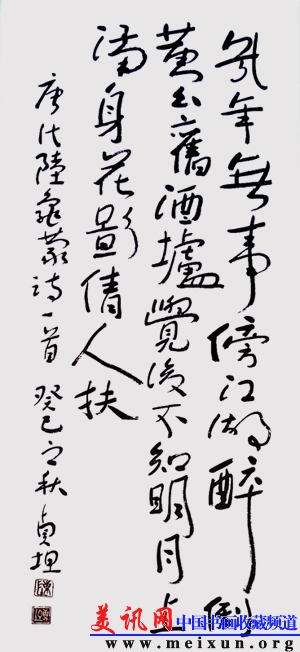 幾年無事傍江湖醉倒
黄公舊酒壚覺後不知明月上
滿身花影倩人扶
唐代陸龜蒙詩一首 癸巳之秋 貞坦
美讯网 中国书画收藏频道
www.meixun.org